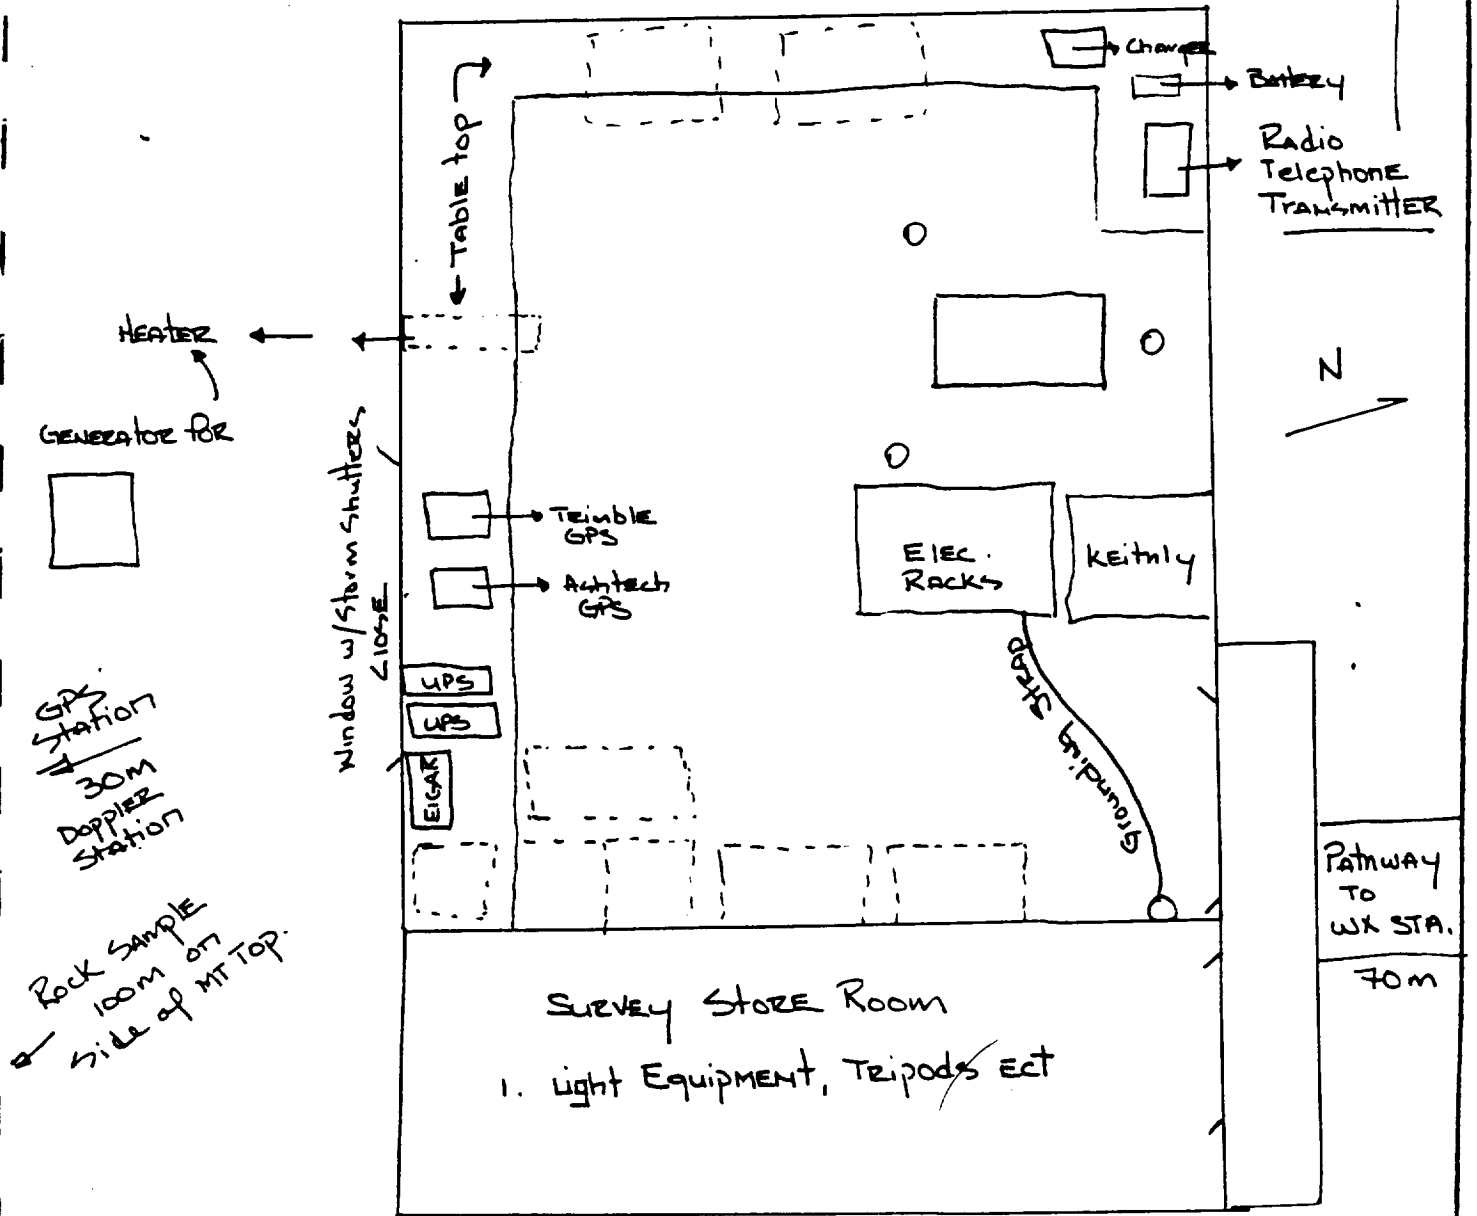 Charger
Battery
Radio
Telephone
Transmitter
Table top
Heater
Generator for
N
Window w/Storm Shutters
Close
Trimble
GPS
Ashtech
GPS
Elec.
Racks
Keithly
UPS
UPS
grounding Strap
GPS
Station
30m
Doppler
Station
Rock Sample
100m on
side of MT Top.
Pathway
To
WX STA.
70m
Survey Store Room
1. Light Equipment, Tripods Ect